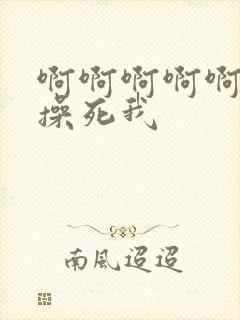 啊啊啊啊啊
操死我
南風迢迢